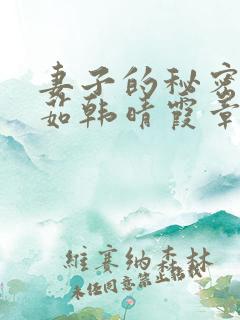 妻子的秘密
茹韩晴霞章
維赛纳森林
未经同意禁止转载